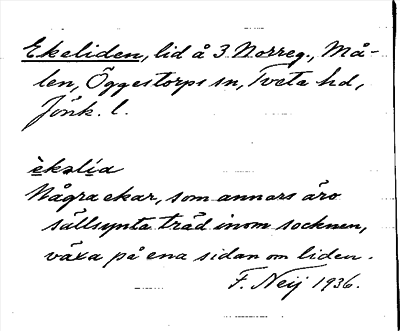 Ekeliden, lid å 3 Norreg., Må-
len, Öggestorps sn, Tveta hd,
Jönk. l.
èkəlía
Några ekar, som annars äro
sällsynta träd inom socknen,
växa på ena sidan om liden.
F. Neij 1936.